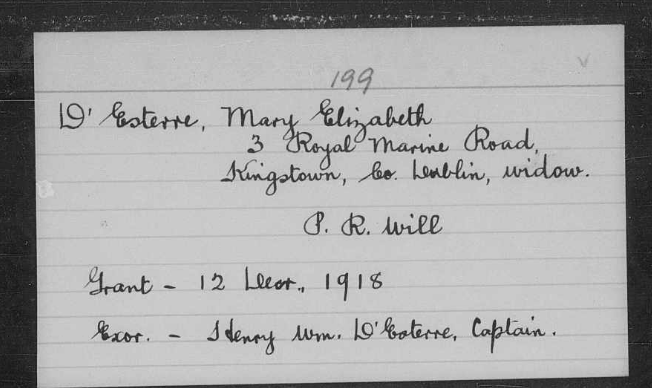 199
D'Esterre, Mary Elizabeth
3 Royal Marine Road,
Kingstown, Co. Dublin, widow.
P. R. Will
Grant - 12 Decr., 1918
Exor. - Henry Wm. D'Esterre, Captain.